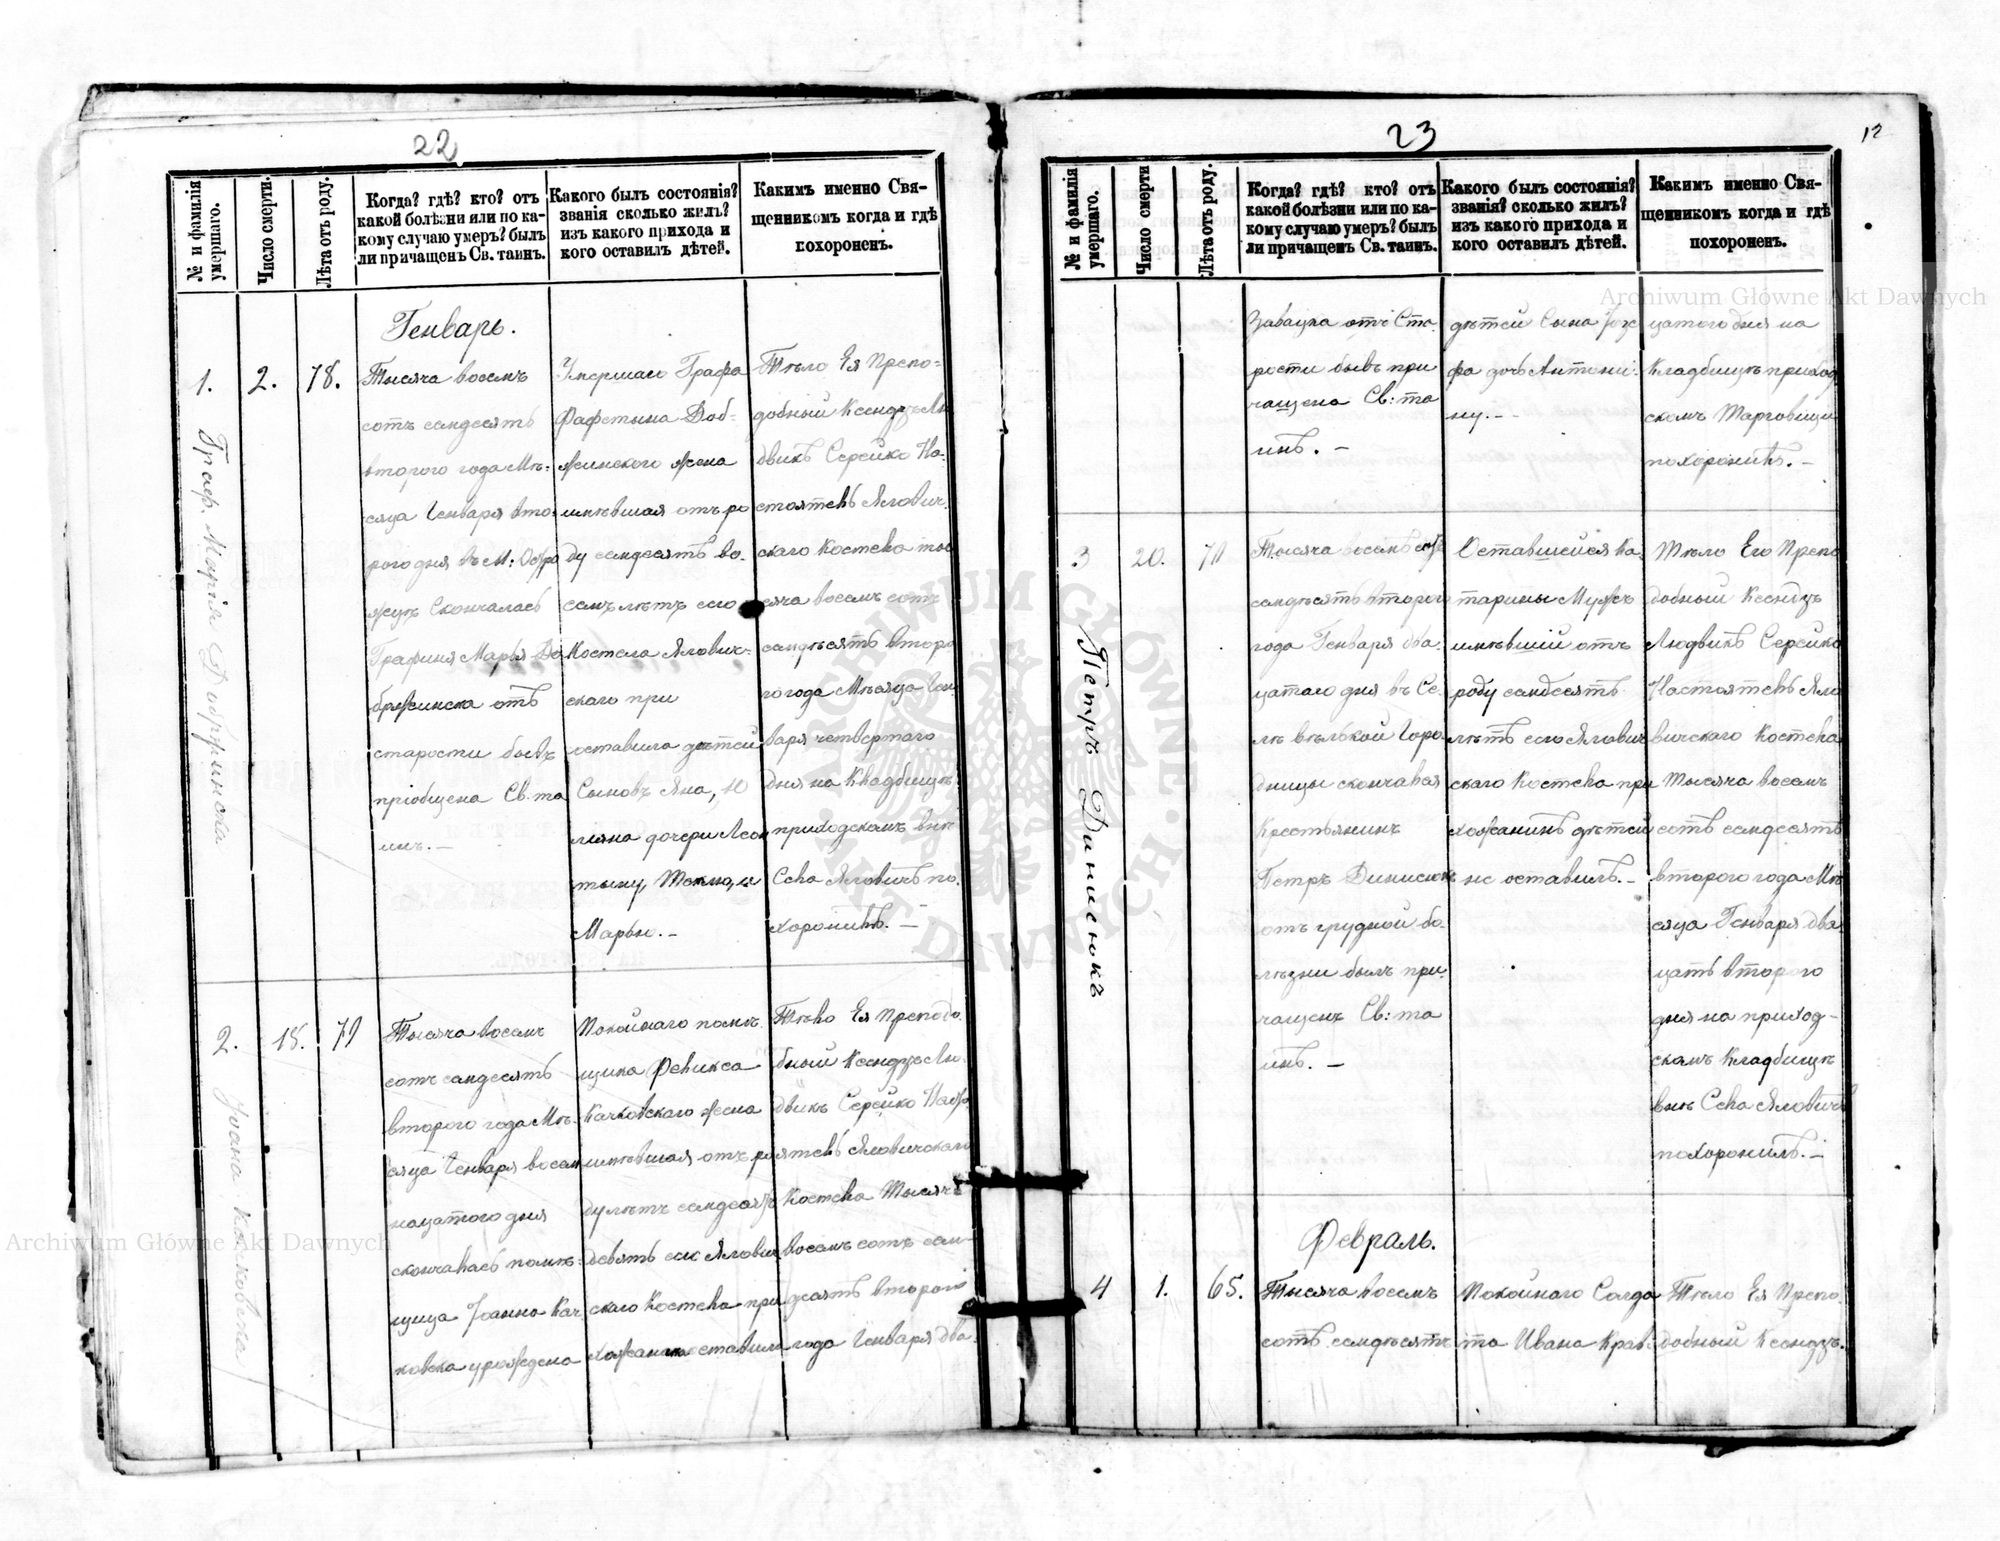 22
№ и фамилія умершаго.
Число смерти.
Лѣта отъ роду.
Когда? гдѣ? кто? отъ
какой болѣзни или по ка-
кому случаю умеръ? былъ
ли причащенъ Св. таинъ.
Какого былъ состоянія?
званія сколько жилъ?
изъ какого прихода и
кого оставилъ дѣтей.
Какимъ именно Свя-
щенникомъ когда и гдѣ
похороненъ.
Генварь.
1.
Граф. Марія
2.
78.
Тысяча восемъ
сотъ семдесятъ
второго года Мѣ-
сяца Генваря вто-
рого дня въ М: Остро
жцѣ Скончалась
Графиня Марья До
бржинска отъ
старости бывъ
пріобщена Св. та
инъ. —
Умершаго Графа
Фаустына Доб-
жинского жена
имѣвшая отъ ро
ду семдесятъ во-
семъ лѣтъ его
Костела Ялович-
скаго при
оставила дѣтей
Сыновъ Яна, Ю
ліяна дочери Леон
тыну, Теклю, и
Марью. —
Тѣло Ея Препо-
добный Ксендзъ Лю
двикъ Серейко На-
стоятель Ялович.
скаго Костела тыс
сяча восемъ сотъ
семдѣсятъ второ
го года Мѣсяца Ген
варя четвертого
дня на Кладбищѣ
приходскомъ внѣ
Села Яловичъ по-
хоронилъ. —
2.
Іоана
18.
79
Тысяча восемъ
сотъ семдесятъ
второго года Мѣ-
сяца Генваря восем
надцатого дня
скончалась помѣ-
щица Іоанна Кач
ковска урожденa
Покойнаго помѣ-
щика Феликса
Качковскаго жена
имѣвшая отъ ро
ду лѣтъ семдесятъ
девять его Ялович
скаго Костела при
хожанка оставила
Тѣло Ея Преподо-
бный Ксендзъ Лю-
двикъ Серейко Наст
ятель Яловичскаго
Костела Тысяча
восемъ сотъ сем-
десятъ второго
года Генваря два-
23
12
№ и фамилія умершаго.
Число смерти
Лѣта отъ роду.
Когда? гдѣ? кто? отъ
какой болѣзни или по ка-
кому случаю умеръ? былъ
ли причащенъ Св. таинъ.
Какого былъ состоянія?
званія? сколько жилъ?
изъ какого прихода и
кого оставилъ дѣтей.
Какимъ именно Свя-
щенникомъ когда и гдѣ
похороненъ.
Завацка отъ Ста-
рости бывъ при
чащена Св: та
инъ. —
дѣтей Сына Іозе
фа дочь Антони-
ну. —
цатого дня на
Кладбищѣ приход
скомъ Тарговищи
похоронилъ. —
3
Петръ Динисюкъ
20.
70
Тысяча восемъ сотъ
семдѣсятъ второго
года Генваря два-
цатаго дня въ Се-
лѣ вѣлькой Горо-
дницы скончался
Крестьянинъ
Петръ Динисюкъ
отъ грудной бо-
лѣзни былъ при-
чащенъ Св: та
инъ. —
Оставшейся Ка-
тарины Мужъ
имѣвшій отъ
роду семдесятъ
лѣтъ его Ялович
скаго Костела при
хожанинъ дѣтей
не оставилъ. —
Тѣло Его Препо
добный Ксендзъ
Людвикъ Серейко
Настоятель Яло
вичскаго Костела
Тысяча восемъ
сотъ семдесятъ
второго года Мѣ
сяца Генваря два-
цать второго
дня на приход-
скомъ Кладбищѣ
внѣ Села Яловичъ
похоронилъ. —
Февраль.
4
1.
65.
Тысяча восемъ
сотъ семдѣсятъ
Покойнаго Солда
та Ивана Крав-
Тѣло Ея Препо-
добный Ксендзъ
Archiwum Główne Akt Dawnych
Archiwum Główne Akt Dawnych
ARCHIWUM GŁÓWNE AKT DAWNYCH